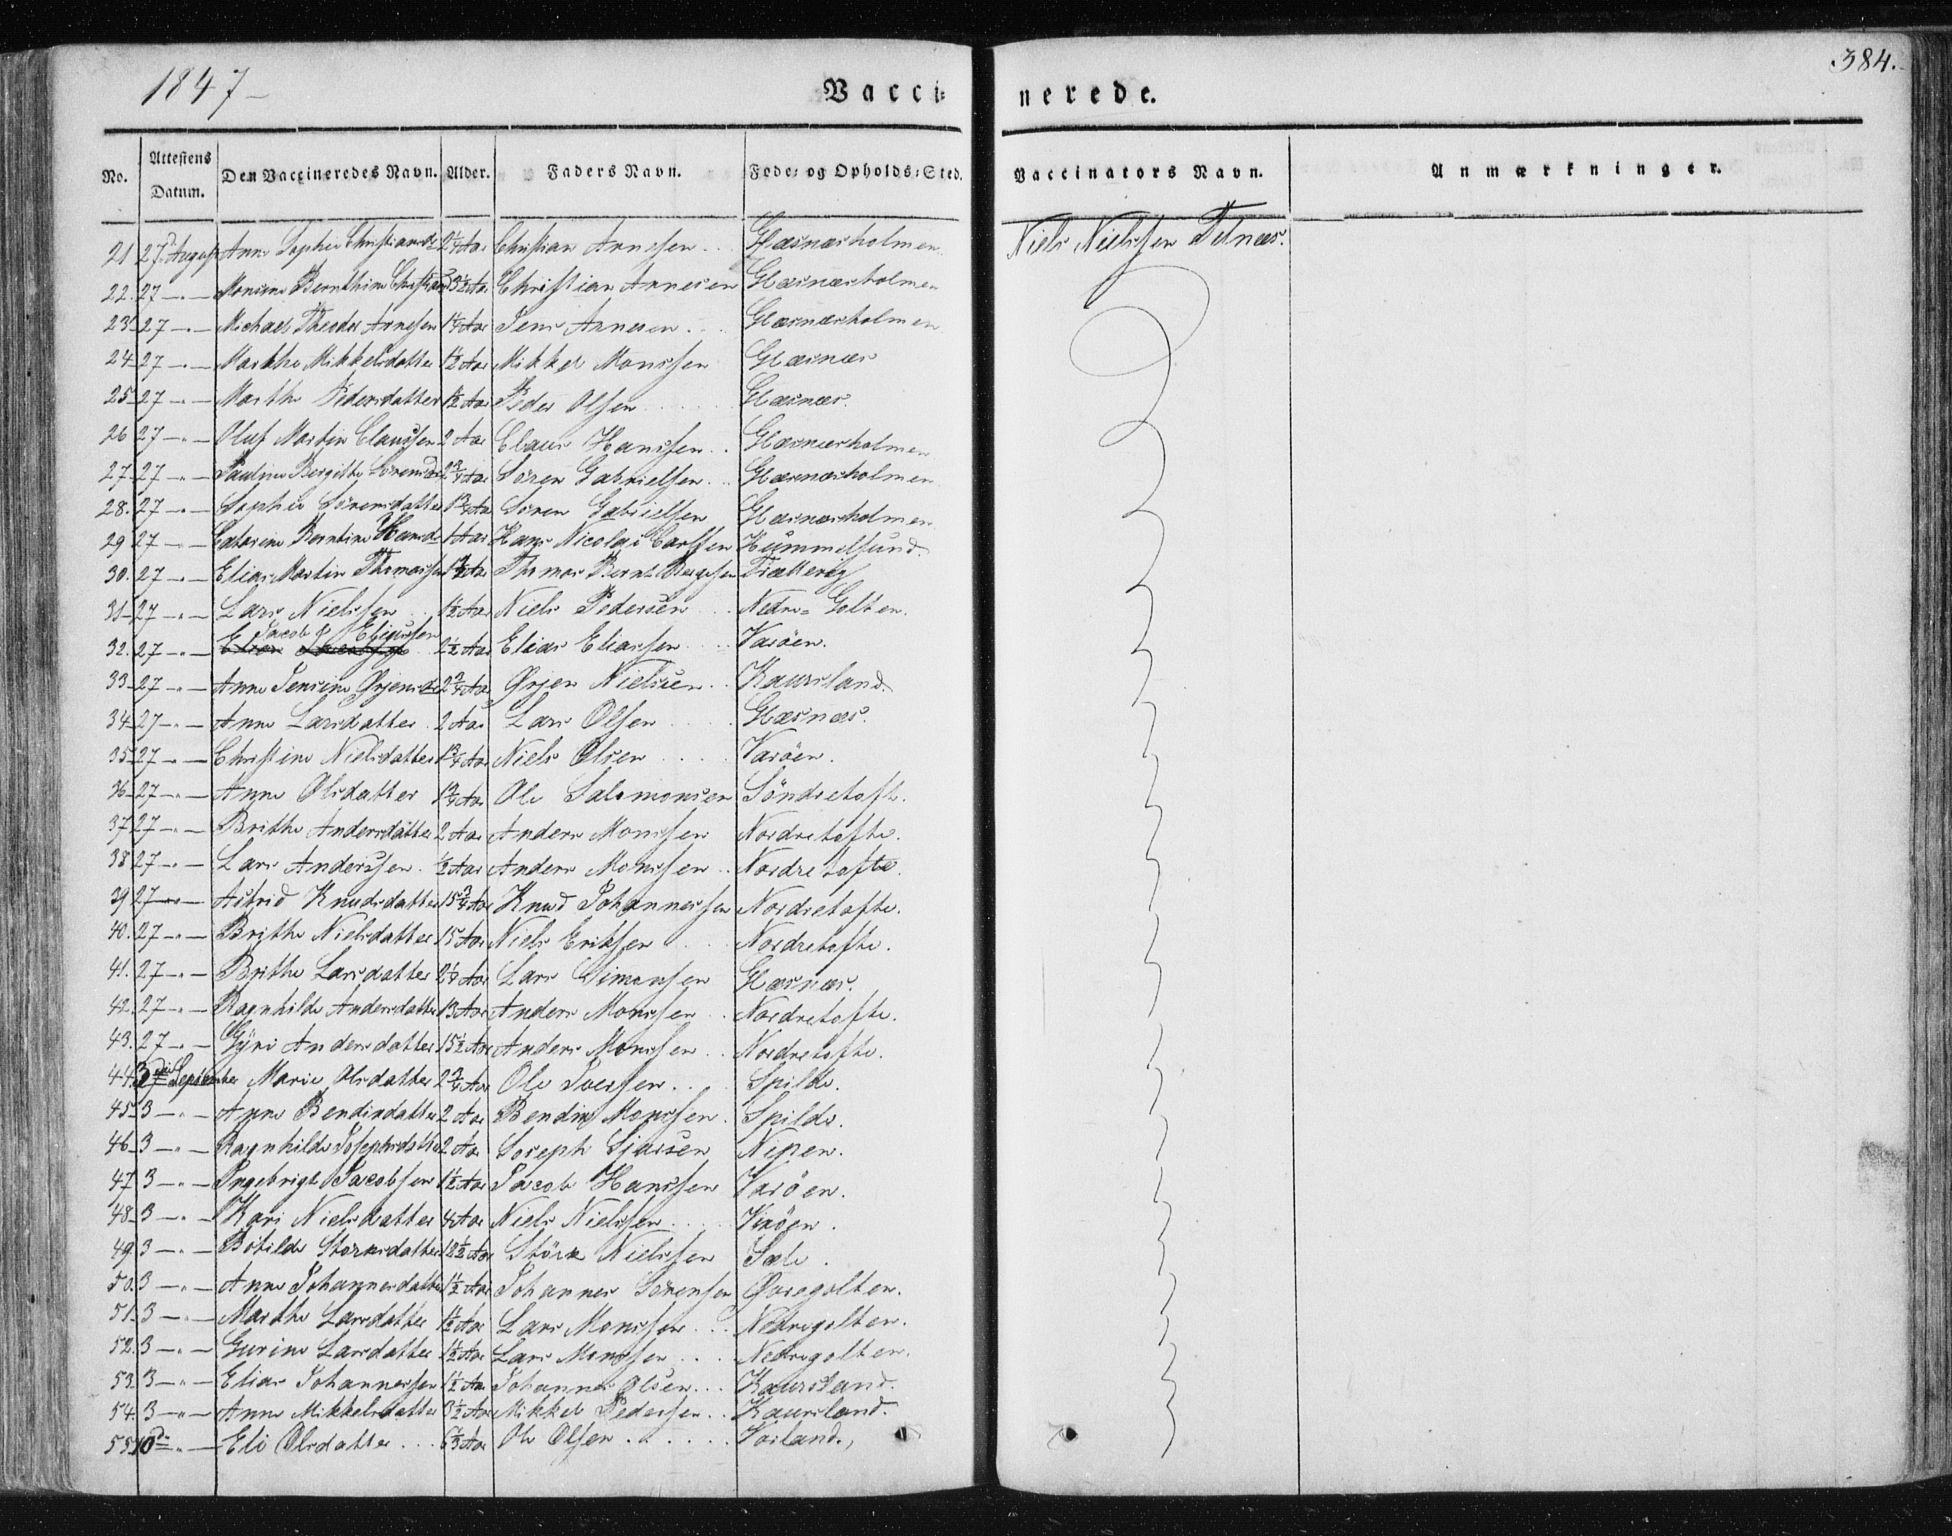 1847 –
384.
Vacci-
nerede.
No. Attestens Datum. Den Vaccineredes Navn. Alder. Faders Navn. Føde- og Opholds-Sted. Vaccinators Navn. Anmærkninger.
21 27 August Anne Sophie Christiansd 2¼ Aar Christian Arnesen Glæsnæsholmen Niels Nielssen Telnæs.
22. 27 –"– Monsine Bernthine 3½ Aar Christian Arnesen Glæsnæsholmen
23. 27 –"– Michael Theodor Arnesen 1¼ Aar Jens Arnesen Glæsnæsholmen
24 27 –"– Marthe Mikkelsdatter 1½ Aar Mikkel Monssen Glæsnæs
25 27 –"– Marthe Pedersdatter 1½ Aar Peder Olsen Glæsnæs.
26 27 –"– Oluf Martin Claussen 2 Aar Claus Hanssen Glæsnæsholmen
27. 27 –"– Pauline Bergitte Sørensd 2¾ Aar Søren Gabrielsen Glæsnæsholmen
28. 27 –"– Sophie Sørensdatter 1¾ Aar Søren Gabrielsen Glæsnæsholmen
29 27 –"– Cathrine Berntine Hansd 1 Aar Hans Nicolai Carlsen Hummelsund.
30. 27 –"– Elias Martin Thomassen Aar Thomas Bernt Trættevig
31 27 –"– Lars Nielssen 1½ Aar Niels Pedersen Nedre-Golten.
32. 27 –"– Jacob Eliassen 2½ Aar Elias Eliassen Varøen.
33 27 –"– Anne Jensine Ørjensd 2¾ Aar Ørjen Nielsen Kaursland.
34 27 –"– Anne Larsdatter 2 Aar Lars Olsen Glæsnæs.
35 27 –"– Christine Nielsdatter 1¾ Aar Niels Olsen Varøen.
36 27 –"– Anne Olsdatter 1¾ Aar Ole Salomonsen Søndretoft.
37 27 –"– Brithe Andersdatter 2 Aar Anders Monssen Nordretofte.
38 27 –"– Lars Anderssen ½ Aar Anders Monssen Nordretofte.
39 27 –"– Astrid Knudsdatter 15¾ Aar Knud Johannessen Nordretofte.
40. 27 –"– Brithe Nielsdatter 15 Aar Niels Eriksen Nordretofte.
41. 27 –"– Brithe Larsdatter 2¼ Aar Lars Simonsen Glæsnæs.
42. 27 –"– Ragnhilde Andersdatter 13 Aar Anders Monssen Nordretofte.
43. 27 –"– Gyri Andersdatter 15½ Aar Anders Monssen Nordretofte.
44. 3 September Marie Olsdatter 2¾ Aar Ole Iversen Spilde.
45 3 –"– Anne Bendixdatter 2 Aar Bendix Monssen Spilde.
46 3 –"– Ragnhilde Josephsdatter 2 Aar Joseph Nipen.
47 3 –"– Ingebrigt Jacobsen 1½ Aar Jacob Hanssen Varøen.
48 3 –"– Kari Nielsdatter 4 Aar Niels Nielssen Varøen.
49 3 –"– Botilde Størksdatter 12½ Aar Størk Nielssen Sele.
50. 3 –"– Anne Johannesdatter 1½ Aar Johannes Sørensen Øvregolten.
51. 3 –"– Marthe Larsdatter 1½ Aar Lars Monssen Nedregolten.
52. 3 –"– Gurine Larsdatter 1½ Aar Lars Monssen Nedregolten.
53. 3 –"– Elias Johannessen 1½ Aar Johannes Olsen Kaursland.
54. 3 –"– Anne Mikkelsdatter 3½ Aar Mikkel Pedersen Kaursland.
55. 10 –"– Eli Olsdatter Aar Ole Olsen